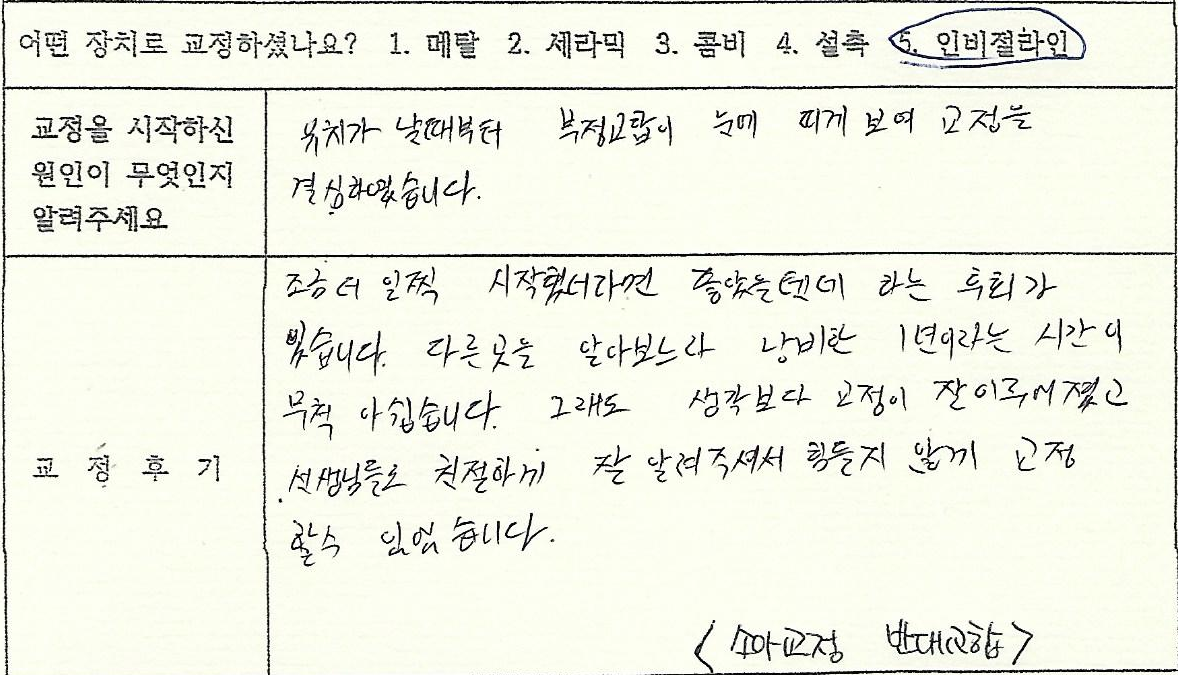 어떤 장치로 교정하셨나요? 1. 메탈 2. 세라믹 3. 콤비 4. 설측 5. 인비절라인
교정을 시작하신
원인이 무엇인지
알려주세요
유치가 날때부터 부정교합이 눈에 띄게 보여 교정을
결심하였습니다.
교 정 후 기
조금 더 일찍 시작했더라면 좋았을텐데 하는 후회가
있습니다. 다른곳을 알아보느라 낭비한 1년이라는 시간이
무척 아쉽습니다. 그래도 생각보다 교정이 잘이루어졌고
선생님들도 친절하게 잘 알려주셔서 힘들지 않게 교정
할수 있었습니다.
<소아교정 반대교합>